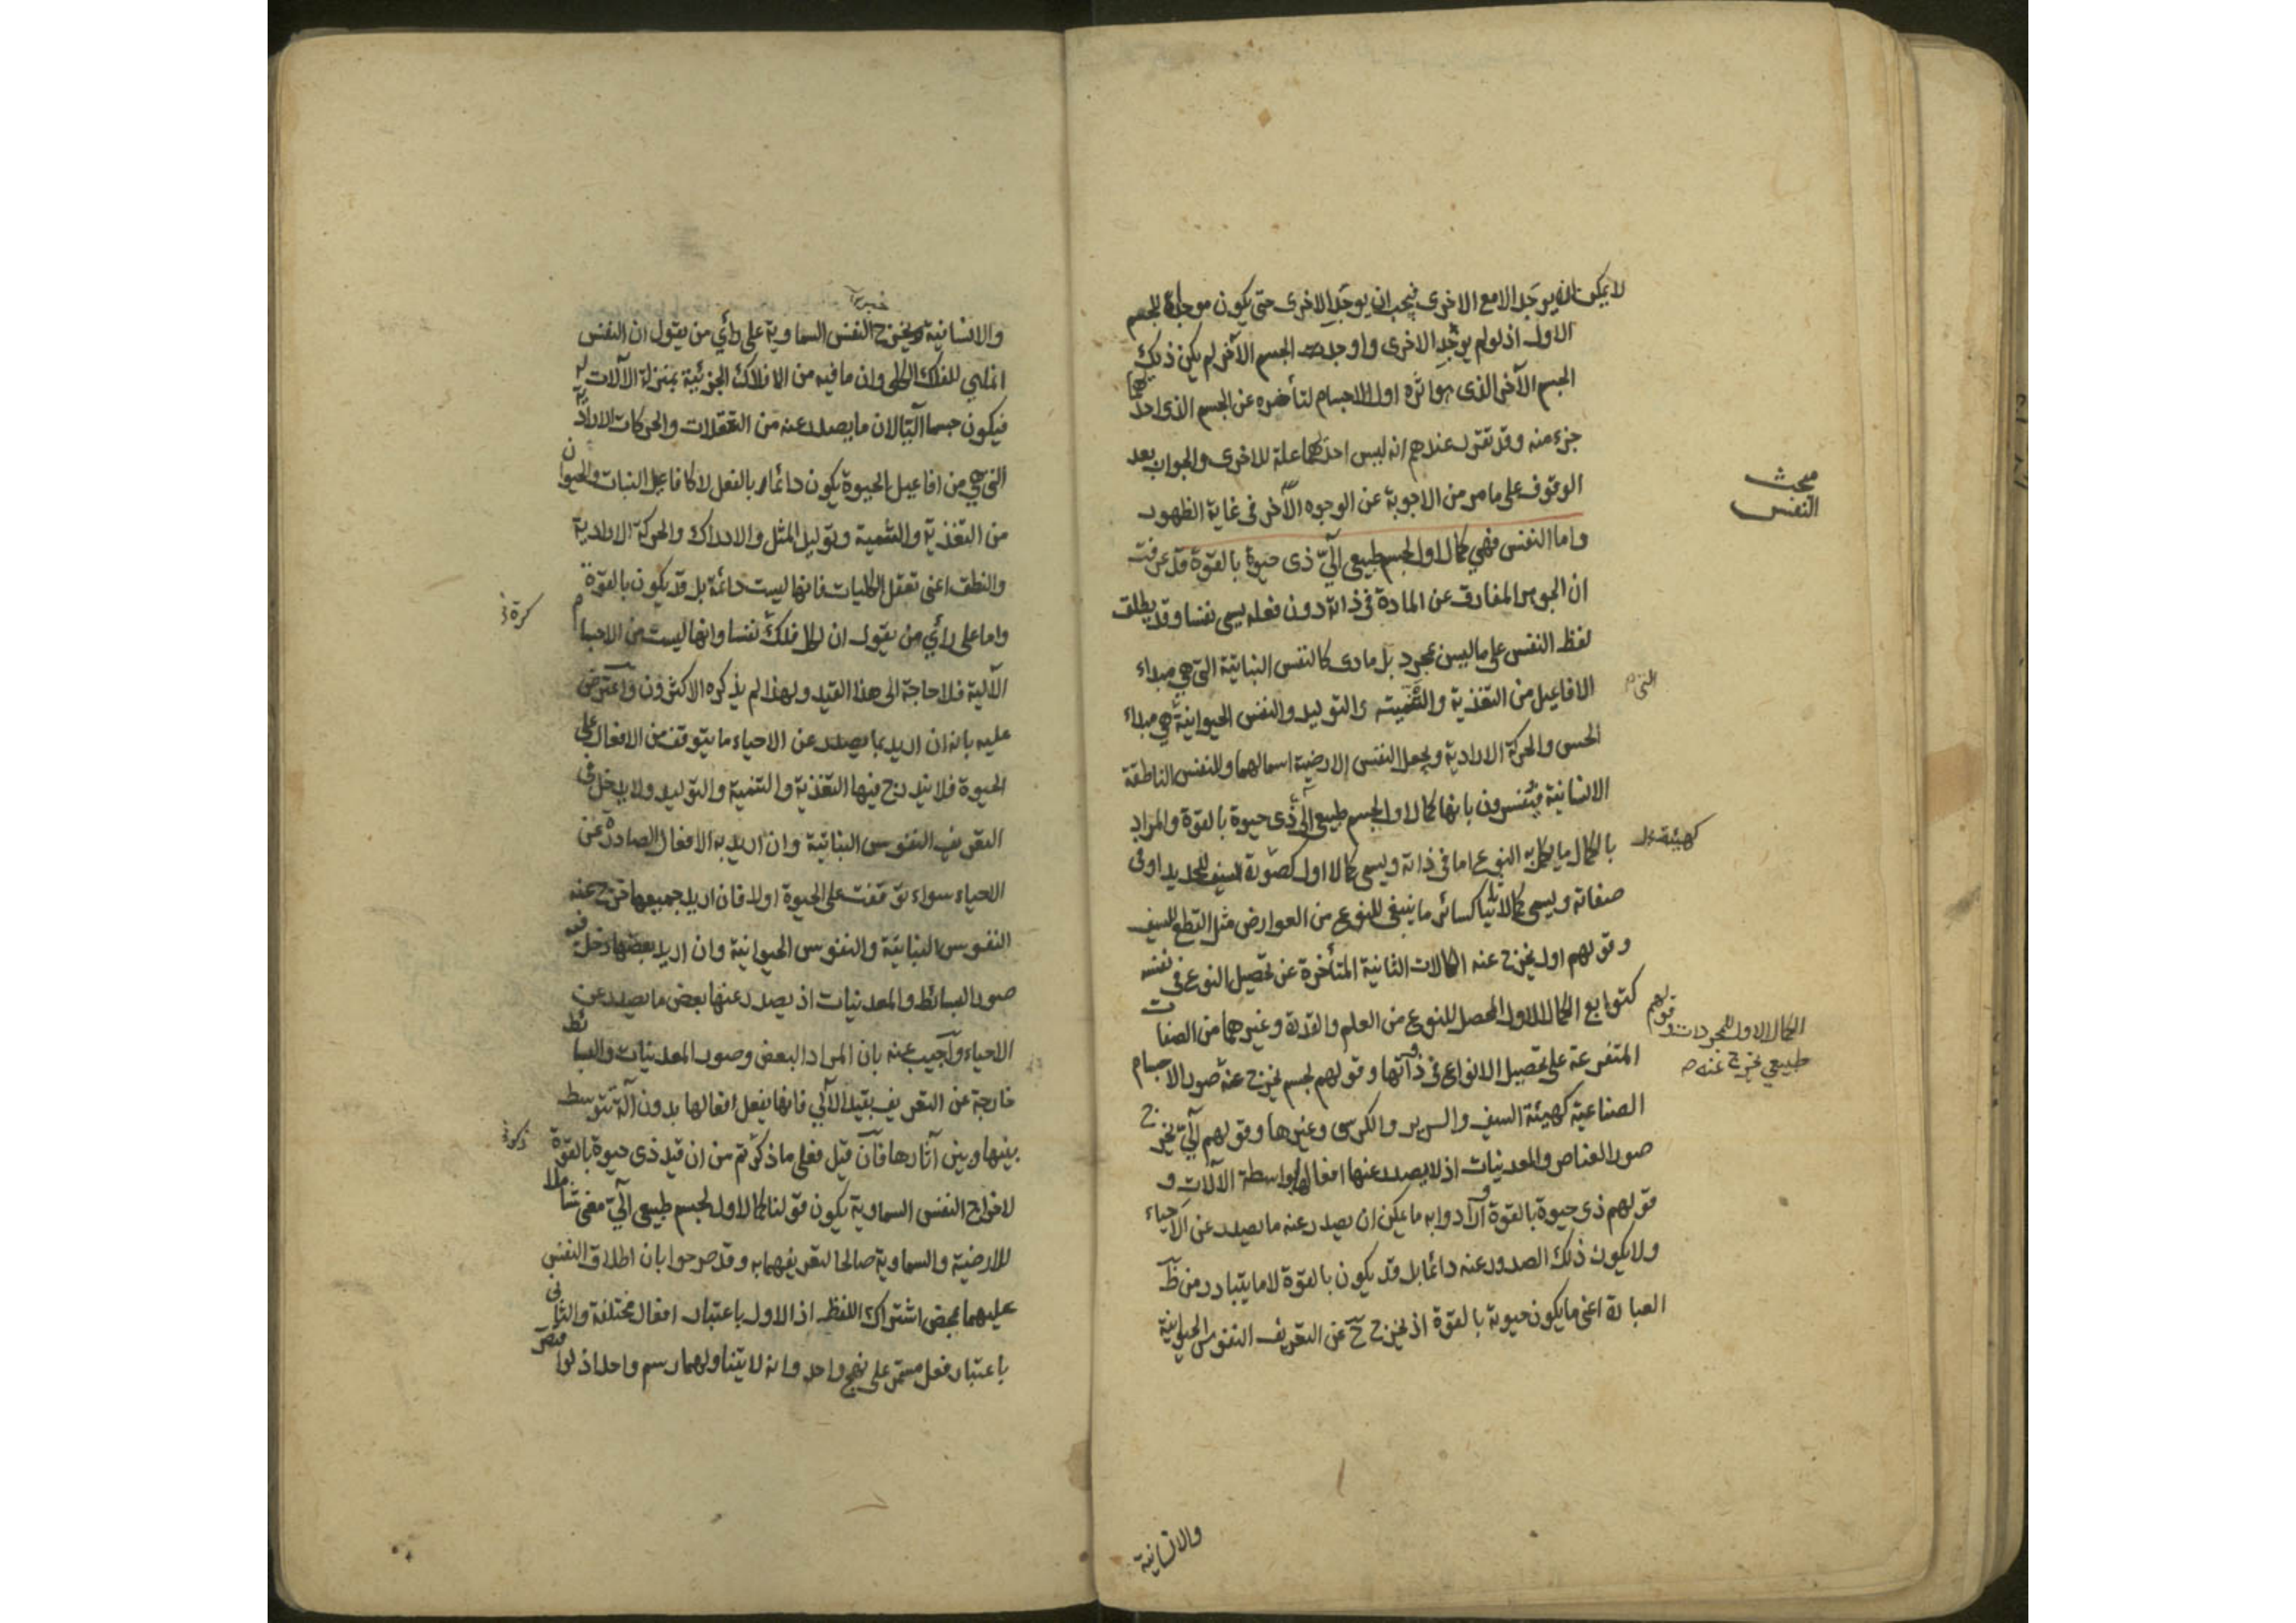 لا يمكن ان يوجد الا مع الاخرى فيجب ان يوجد الاخرى حتى يكون موجدة للجسم
الاول اذ لو لم يوجد الاخرى واوجدت الجسم الآخر لم يكن ذلك
الجسم الآخر الذى هو اثره اول الاجسام لتأخره عن الجسم الذى احدهما
جزء منه وقد تقرر عندهم انه ليس احدهما علة للاخرى والجواب بعد
الوقوف على ما مر من الاجوبة عن الوجوه الأخر فى غاية الظهور
مبحث
النفس
واما النفس فهي كمال اول لجسم طبيعى آليّ ذى حيوة بالقوة قد عرفت
ان الجوهر المفارق عن المادة فى ذاته دون فعله يسمى نفسا وقد يطلق
لفظ النفس على ما ليس بمجرد بل مادى كالنفس النباتية التي هي مبداء
الافاعيل من التغذية والتنمية والتوليد والنفس الحيوانية هي مبداء
التى
الحس والحركة الارادية ويجعل النفس الارضية اسما لهما وللنفس الناطقة
الانسانية فيفسرون بانها كمال اول لجسم طبيعى آلى ذى حيوة بالقوة والمراد
بالكمال ما يكمل به النوع اما فى ذاته ويسمى كمالا اول كصورة السيف للحديد او فى
كهيئة
صفاته ويسمى كمالا ثانيا كسائر ما ينبغى للنوع من العوارض مثل القطع للسيف
وقولهم اول يخرج عنه الكمالات الثانية المتأخرة عن تحصيل النوع فى نفسه
كتوابع الكمال الاول المحصل للنوع من العلم والقدرة وغيرهما من الصفات
المتفرعة على تحصيل الانواع فى ذواتها وقولهم لجسم يخرج عنه صور الاجسام
الكمال الاول للمجردات وقولهم
طبيعي يخرج عنه
الصناعية كهيئة السيف والسرير والكرسى وغيرها وقولهم آليّ يخرج
صور العناصر والمعدنيات اذ لا يصدر عنها افعالها بواسطة الآلات و
قولهم ذى حيوة بالقوة ارادوا به ما يمكن ان يصدر عنه ما يصدر عن الاحياء
ولا يكون ذلك الصدور عنه دائما بل قد يكون بالقوة لا ما يتبادر من ظ
العبارة اعنى ما يكون حيوته بالقوة اذ يخرج ح عن التعريف النفوس الحيوانية
والانسانية
والانسانية ويخرج النفس السماوية على رأي من يقول ان النفس
انما هي للفلك الكلى وان ما فيه من الافلاك الجزئية بمنزلة الآلات له
فيكون جسما آليا لان ما يصدر عنه من التعقلات والحركات الارادية
التى هي من افاعيل الحيوة يكون دائما بالفعل لا كافاعيل النبات والحيوان
من التغذية والتنمية وتوليد المثل والادراك والحركة الارادية
والنطق اعنى تعقل الكليات فانها ليست دائمة بل قد يكون بالقوة
واما على رأي من يقول ان لكل فلك نفسا وانها ليست من الاجسام
الآلية فلا حاجة الى هذا القيد ولهذا لم يذكره الاكثرون واعترض
عليه بانه ان اريد بما يصدر عن الاحياء ما يتوقف من الافعال على
الحيوة فلا يندرج فيها التغذية والتنمية والتوليد ولا يدخل فى
التعريف النفوس النباتية وان اريد به الافعال الصادرة عن
الاحياء سواء توقفت على الحيوة او لا فان اريد جميعها خرج عنه
النفوس النباتية والنفوس الحيوانية وان اريد بعضها دخل فيه
صور البسائط والمعدنيات اذ يصدر عنها بعض ما يصدر عن
الاحياء وأجيب عنه بان المراد البعض وصور المعدنيات والبسائط
خارجة عن التعريف بقيد الآلي فانها يفعل افعالها بدون آلة تتوسط
بينها وبين آثارها فان قيل فعلى ما ذكرتم من ان قيد ذى حيوة بالقوة
لاخراج النفس السماوية يكون قولنا كمال اول لجسم طبيعى آليّ معنى شاملا
للارضية والسماوية صالحا لتعريفهما به وقد صرحوا بان اطلاق النفس
عليهما بمحض اشتراك اللفظ اذ الاول باعتبار افعال مختلفة والثانى
باعتبار فعل مستمر على نهج واحد وانه لا يتناولهما رسم واحد اذ لو اقتصر